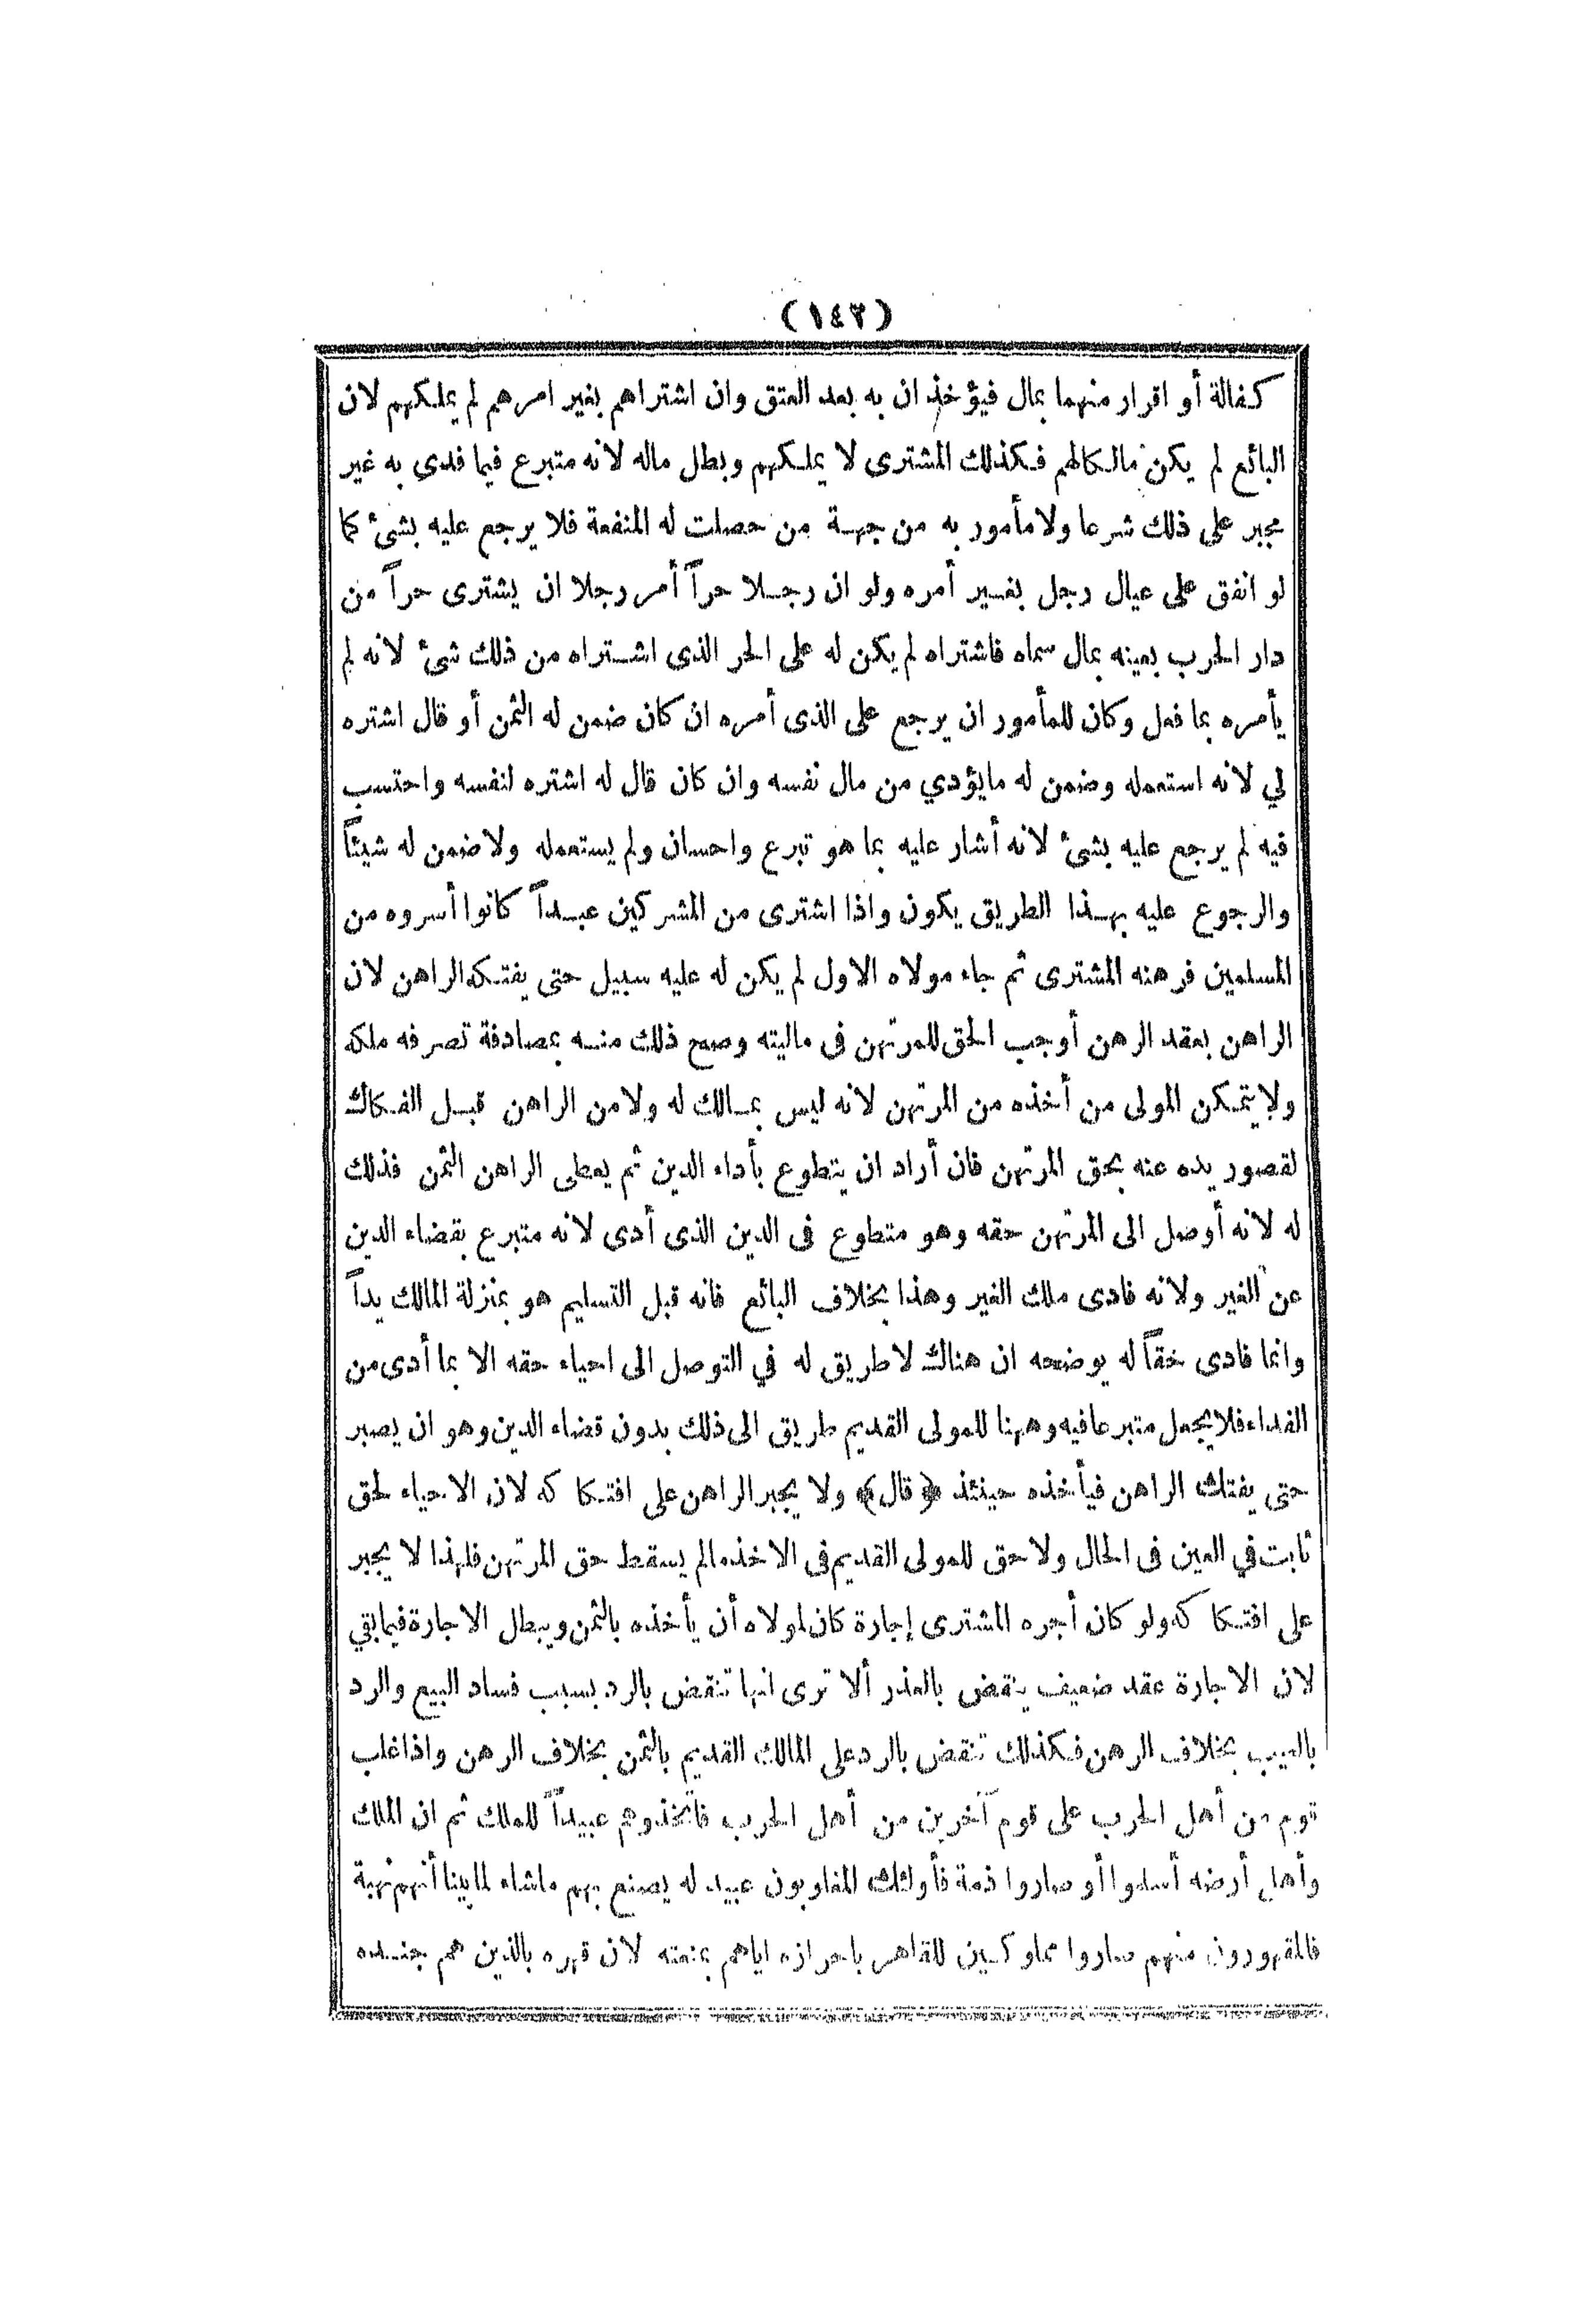 (١٤٣)
كفالة أو اقرار منهما بمال فيؤخذ ان به بعد العتق وان اشتراهم بغير امرهم لم يملكهم لان
البائع لم يكن مالكا لهم فكذلك المشترى لا يملكهم وبطل ماله لانه متبرع فيما فدى به غير
مجبر على ذلك شرعا ولا مأمور به من جهة من حصلت له المنفعة فلا يرجع عليه بشئ كما
لو انفق على عيال رجل بغير أمره ولو ان رجلا حراً أمر رجلا ان يشترى حراً من
دار الحرب بعينه بمال سماه فاشتراه لم يكن له على الحر الذى اشتراه من ذلك شئ لانه لم
يأمره بما فعل وكان للمأمور ان يرجع على الذى أمره ان كان ضمن له الثمن أو قال اشتره
لي لانه استعمله وضمن له مايؤدي من مال نفسه وان كان قال له اشتره لنفسه واحتسب
فيه لم يرجع عليه بشئ لانه أشار عليه بما هو تبرع واحسان ولم يستعمله ولا ضمن له شيئاً
والرجوع عليه بهذا الطريق يكون واذا اشترى من المشركين عبداً كانوا أسروه من
المسلمين فرهنه المشترى ثم جاء مولاه الاول لم يكن له عليه سبيل حتى يفتكه الراهن لان
الراهن بعقد الرهن أوجب الحق للمرتهن فى ماليته وصح ذلك منه بمصادفة تصرفه ملكه
ولا يتمكن المولى من أخذه من المرتهن لانه ليس بمالك له ولا من الراهن قبل الفكاك
لقصور يده عنه بحق المرتهن فان أراد ان يتطوع بأداء الدين ثم يعطى الراهن الثمن فذلك
له لانه أوصل الى المرتهن حقه وهو متطوع فى الدين الذى أدى لانه متبرع بقضاء الدين
عن الغير ولانه فادى ملك الغير وهذا بخلاف البائع فانه قبل التسليم هو بمنزلة المالك يداً
وانما فادى حقاً له يوضحه ان هناك لا طريق له في التوصل الى احياء حقه الا بما أدى من
الفداء فلا يجعل متبرعا فيه وههنا للمولى القديم طريق الى ذلك بدون قضاء الدين وهو ان يصبر
حتى يفتك الراهن فيأخذه حينئذ ﴿قال﴾ ولا يجبر الراهن على افتكا كه لان الاحياء لحق
ثابت في العين فى الحال ولا حق للمولى القديم فى الاخذ مالم يسقط حق المرتهن فلهذا لا يجبر
على افتكا كه ولو كان أجره المشترى إجارة كان لمولاه أن يأخذه بالثمن ويبطل الاجارة فيما بقي
لان الاجارة عقد ضعيف ينقض بالعذر ألا ترى انها تنقض بالرد بسبب فساد البيع والرد
بالعيب بخلاف الرهن فكذلك تنقض بالرد على المالك القديم بالثمن بخلاف الرهن واذا غلب
قوم من أهل الحرب على قوم آخرين من أهل الحرب فاتخذوهم عبيداً للملك ثم ان الملك
وأهل أرضه أسلموا أو صاروا ذمة فأولئك المغلوبون عبيد له يصنع بهم ماشاء لما بينا أنهم نهبة
فالمقهورون منهم صاروا مملوكين للقاهر باحرازه اياهم بمنعته لان قهره بالذين هم جنده